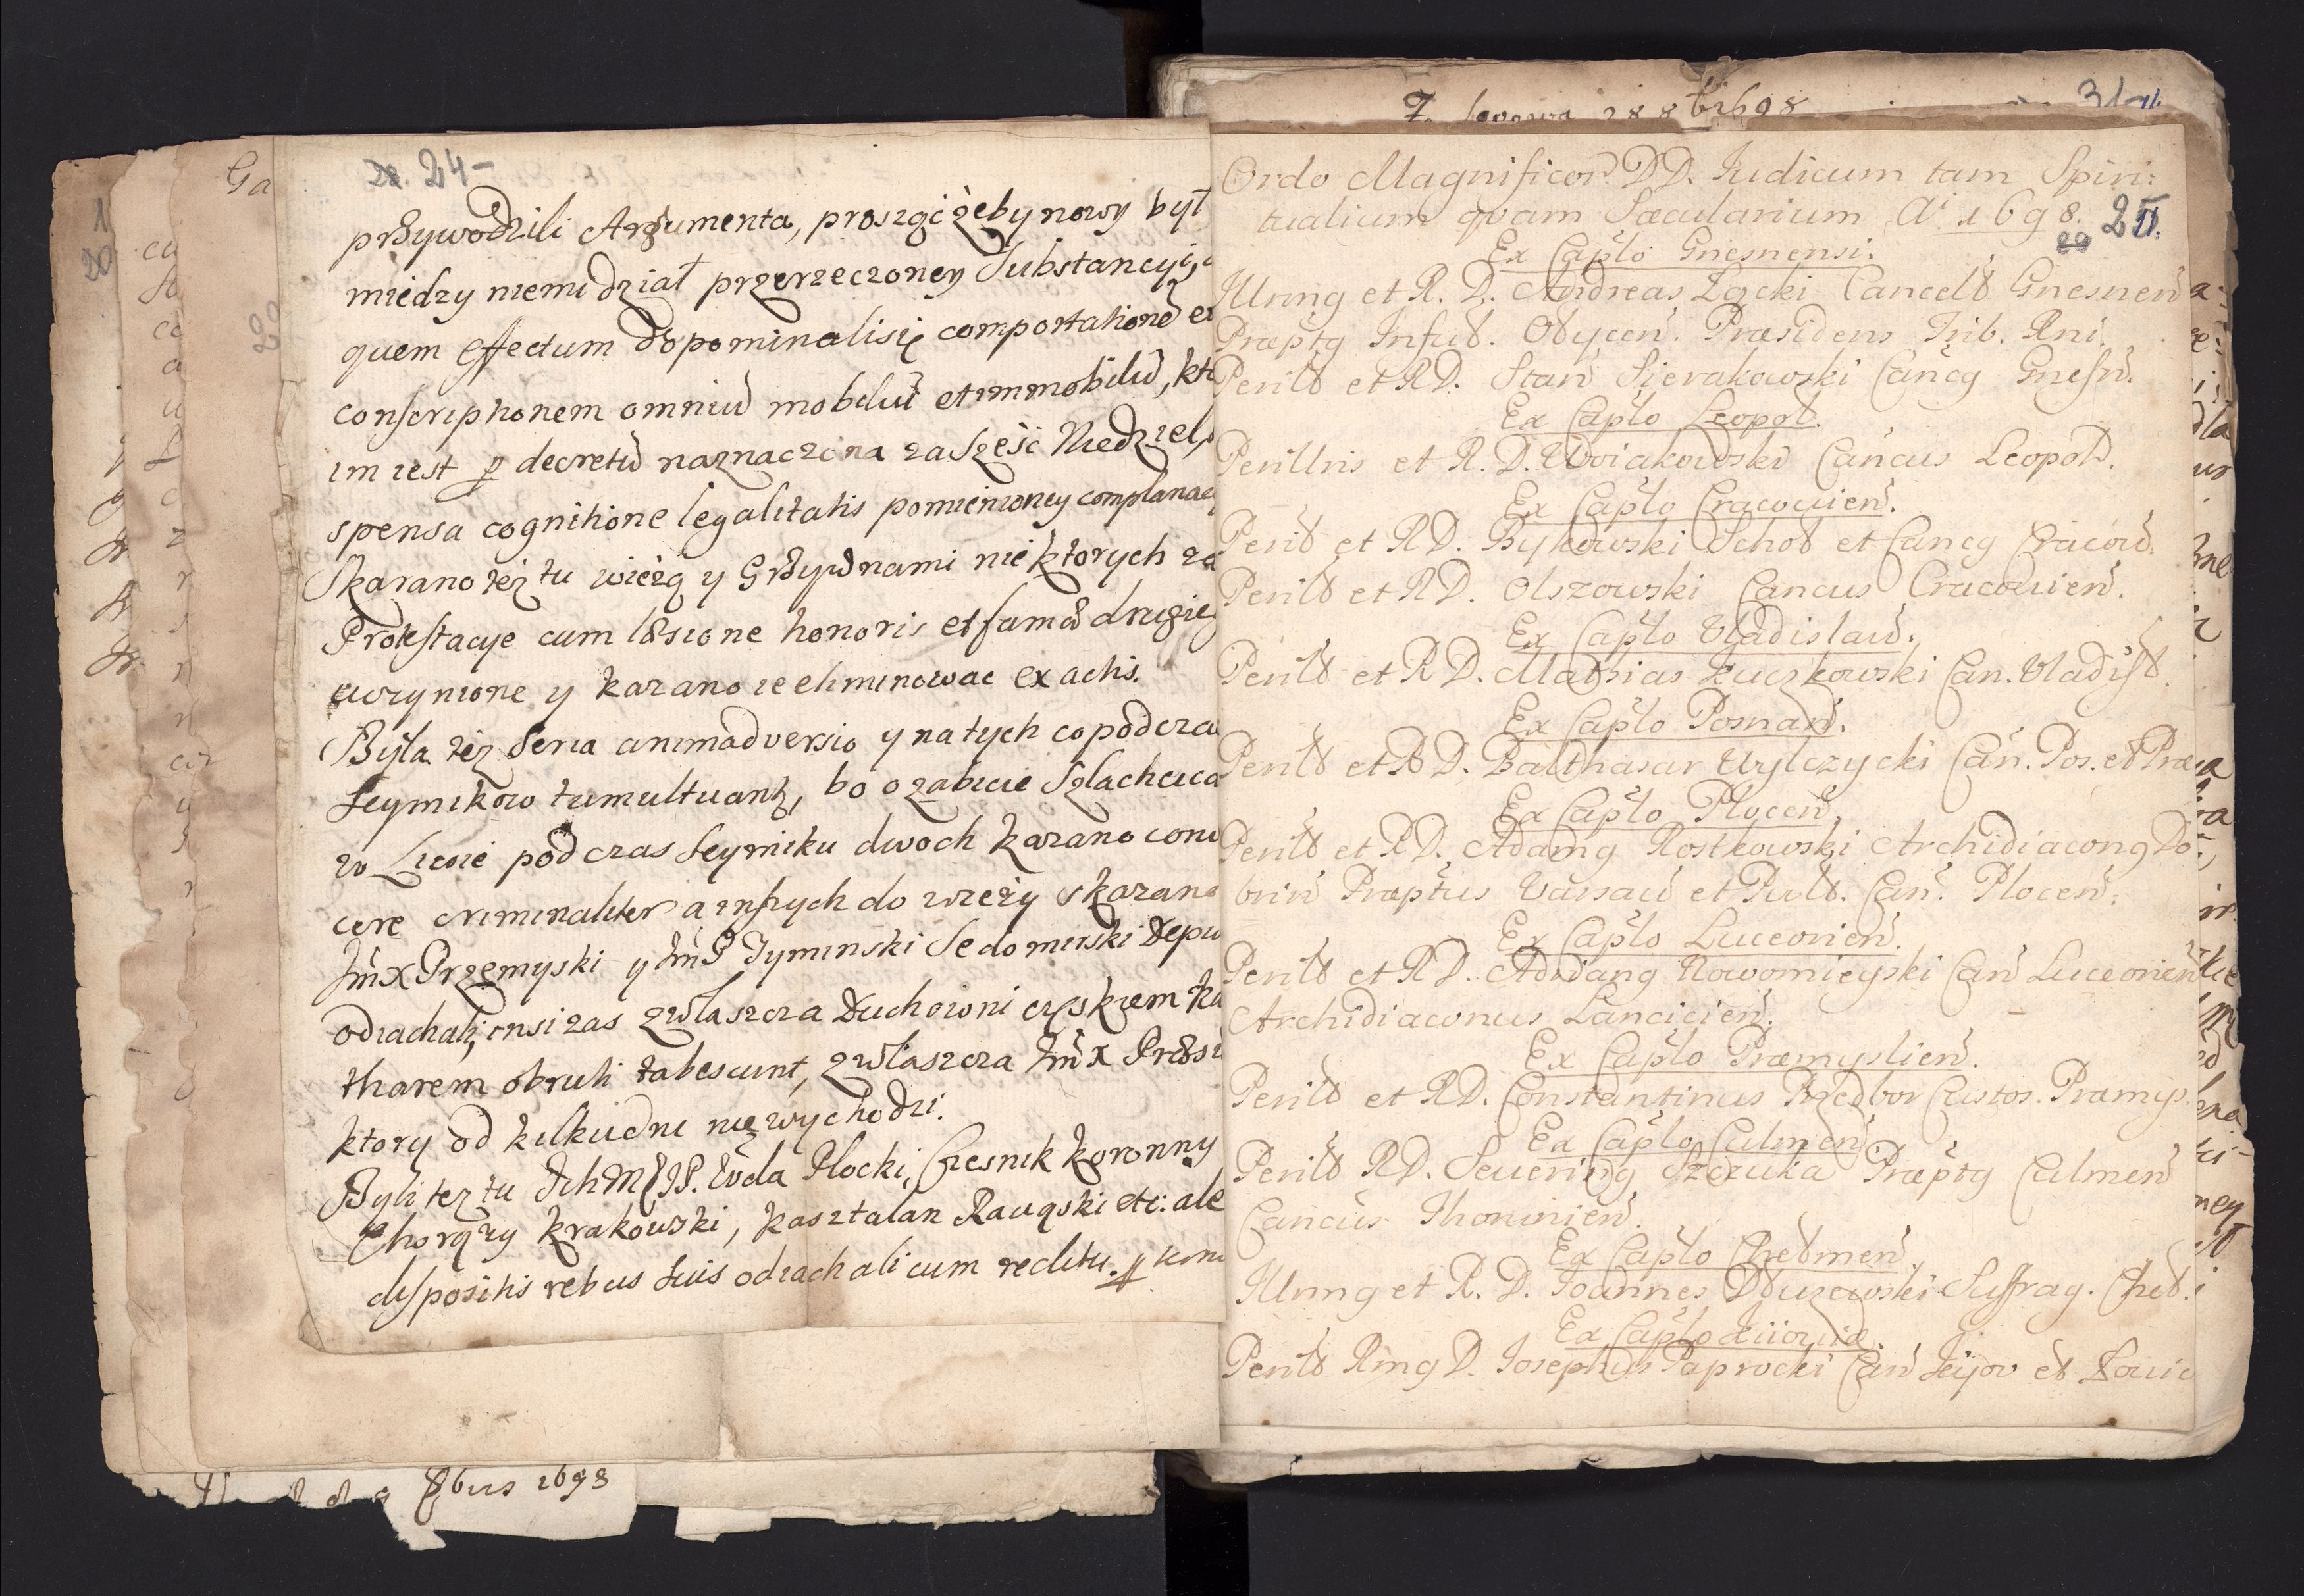 24
przywodzili Argumenta, prosząc żeby nowy był
miedzy niemi dział przerzeczoney Substancyi,
quem effectum dopominalisię comportationem
conscriptionem omniũ mobiliũ et immobiliũ,
im iest p decretũ naznaczona za Sześć Niedziel,
spensa cognitione legalitatis pomienioney
Skarano też tu wieżą y Grzywnami niektorych
Protestacye cum læsione honoris et famæ
uczynione y kazano ie eliminowac ex actis.
Była też Seria animadversio y na tych co podcza
Seymikow tumultuant, bo o zabicie Szlachcica
w Liwie podczas Seymiku dwoch kazano
cere criminaliter a inszych do wieży skazano
JmX Przemyski y JmP Tyminski Sedomirski Depu
odiachali, insi zas zwłaszcza Duchowni cięszkiem
tharem obruti tabescunt, zwłaszcza JmX
ktory od kilku dni nie wychodzi.
Byli tez tu Plocki, Czesnik koronny
Chorąży krakowski, kasztalan Rawąski etc: ale
dispositis rebus suis odiachali cum reditu.
8bus 1698
28 8bris 1698
31
Ordo Magnificor. DD. Iudicum tam Spiri:
tualium quam Sæcularium Ai 1698.
25.
Ex Capło Gnesnensi.
et R. D. Andreas Cancell Gnesnen
Præptg Infuł. Præsidens Trib. Rni.
Perill et RD. Stan Sierakowski Cancg Gnesn.
Ex Capło Leopol.
Perillris et R. D. Woiakowski Cancus Leopold.
Ex Capło Cracouien.
Perill et RD. Bykowski Schol et Cancg Cracow.
Perill et RD. Olszowski Cancus Cracouien.
Ex Capło Vladislau.
Perill et RD. Mathias Can. Vladisl.
Ex Capło Posnan.
Perill et RD. Balthasar Wylczycki Can. Pos. et
Ex Capło Plocen.
Perill et RD. Adamg Rostkowski Archidiacong Do:
brin Præptus Varsau et Pult. Can. Plocen.
Ex Capło Luceorien.
Perill et RD. Adriang Nowomieyski Can Luceorien
Archidiaconus Lancicien.
Ex Capło Præmyslien.
Perill et RD. Constantinus Predbor Custos. Præmys.
Ex Capło Culmen
Perill RD. Seuering Szczuka Præptg Culmen
Cancus Thorunien.
Ex Capło Chełmen.
et R. D. Ioannes Dłuzewski Suffrag. Cheł.
Ex Capło Kiiouiæ.
Perill Rmg D. Iosephus Paprocki Can Kijov et